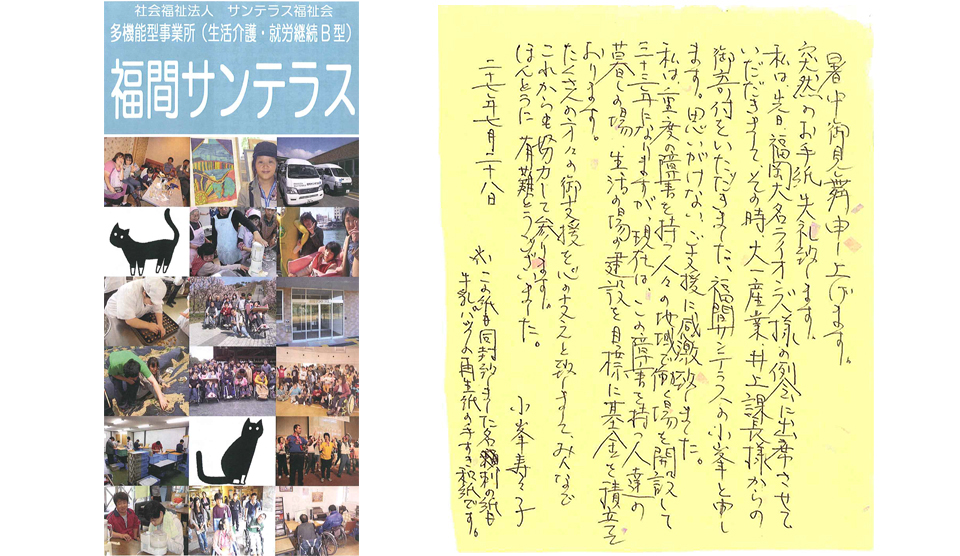 社会福祉法人 サンテラス福祉会
多機能型事業所(生活介護・就労継続B型)
福間サンテラス
暑中御見舞申上げます。
突然のお手紙失礼致します。
私は先日、福岡大名ライオンズ様の例会に出席させて
いただきまして、その時、大一産業・井上課長様からの
御寄付をいただきました、福間サンテラスの小峯と申し
ます。思いがけない、ご支援に感激致しました。
私は、重度の障害を持つ人々の地域で働く場を開設して
三十三年になりますが、現在は、この障害を持つ人達の
暮しの場、生活の場の建設を目標に基金を積立てて
おります。
たくさんの方々の御支援を心の支えと致しまして、みんなで
これからも協力して参ります。
ほんとうに有難とうございました。
二十七年七月二十八日
小峯寿々子
※この紙も同封致しました名刺の紙も
牛乳パックの再生紙の手すき和紙です。